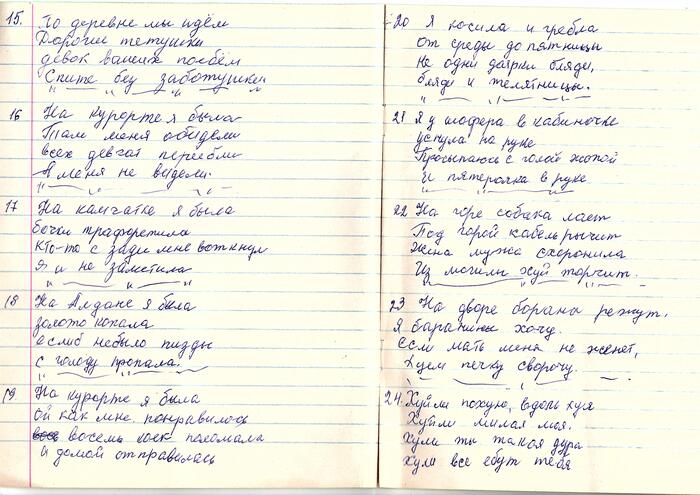 15. По деревне мы идём
Дорогие тетушки
девок ваших поебём
Спите без заботушки
16 На курорте я была
Там меня обидели
всех девчат переебли
А меня не видели.
17 На камчатке я была
бочки трафаретила
Кто-то с зади мне воткнул
Я и не заметила
18 На Алдане я была
золото копала
еслиб небыло пизды
с голоду пропала.
19. На курорте я была
Ой как мне понравилось
восемь коек поломала
и домой отправилась
20 Я косила и гребла
от среды до пятницы
не одни доярки бляди,
бляди и телятницы.
21 Я у шофера в кабиночке
уснула на руке
Просыпаюсь с голой жопой
и пятерочка в руке
22 На горе собака лает
Под горой кабель рычит
Жена мужа схоронила
Из могилы хуй торчит.
23 На дворе бораны режут,
Я баранины хочу.
Если мать меня не женет,
Хуем печку сворочу.
24. Хуйли похую, вдоль хуя
Хуйли милая моя.
Хули ты такая дура
Хули все ебут тебя